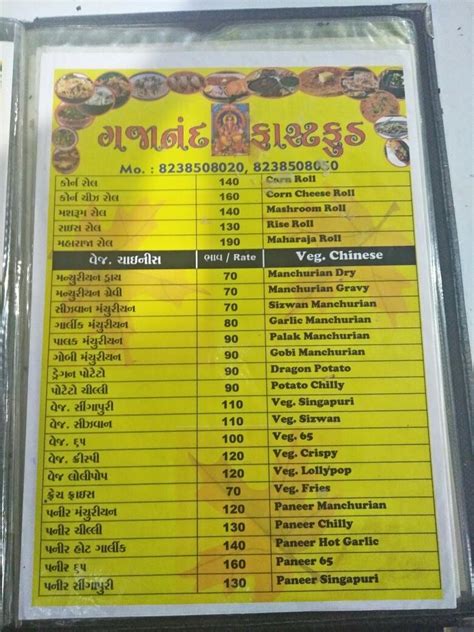 ગજાનંદ ફાસ્ટફુડ
Mo. : 8238508020, 8238508050
કોર્ન રોલ 140 Corn Roll
કોર્ન ચીઝ રોલ 160 Corn Cheese Roll
મશરૂમ રોલ 140 Mashroom Roll
રાઇસ રોલ 130 Rise Roll
મહારાજા રોલ 190 Maharaja Roll
વેજ. ચાઇનીસ ભાવ / Rate Veg. Chinese
મન્ચુરીયન ડ્રાય 70 Manchurian Dry
મન્ચુરીયન ગ્રેવી 70 Manchurian Gravy
સીઝવાન મંચુરીયન 70 Sizwan Manchurian
ગાર્લીક મંચુરીયન 80 Garlic Manchurian
પાલક મંચુરીયન 90 Palak Manchurian
ગોબી મંચુરીયન 90 Gobi Manchurian
ડ્રેગન પોટેટો 90 Dragon Potato
પોટેટો ચીલ્લી 90 Potato Chilly
વેજ. સીંગાપુરી 110 Veg. Singapuri
વેજ. સીઝવાન 110 Veg. Sizwan
વેજ. ૬૫ 100 Veg. 65
વેજ. ક્રીસ્પી 120 Veg. Crispy
વેજ લોલીપોપ 120 Veg. Lollypop
ફ્રેચ ફ્રાઇસ 70 Veg. Fries
પનીર મંચુરીયન 120 Paneer Manchurian
પનીર ચીલ્લી 130 Paneer Chilly
પનીર હોટ ગાર્લીક 140 Paneer Hot Garlic
પનીર ૬૫ 160 Paneer 65
પનીર સીંગાપુરી 130 Paneer Singapuri